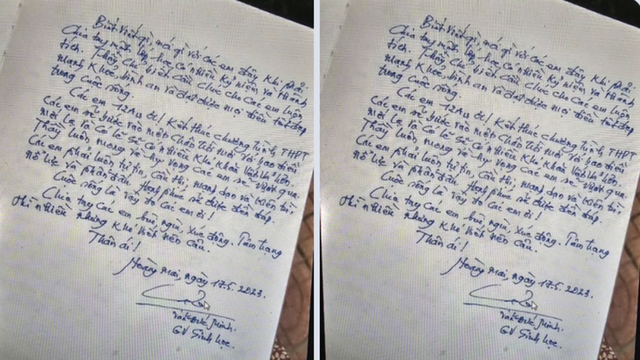 Biết viết gì, nói gì với các em đây khi phải
Chia tay mảnh lớp học có nhiều kỷ niệm và thành
tích. Thầy chỉ biết cầu chúc cho các em luôn
mạnh khoẻ, bình an và đạt được mọi điều tốt đẹp
trong cuộc sống.
Các em 12 ơi! Kết thúc chương trình THPT
các em sẽ bước vào một chân trời mới với bao điều
mới lạ, và có lẽ sẽ có nhiều khó khăn
Thầy luôn mong và hy vọng các em sẽ vượt qua
Các em phải luôn tự tin, cần cù, mạnh dạn và kiên trì
nỗ lực và phấn đấu, hạnh phúc sẽ được đền đáp.
Cuộc sống là vậy đó các em ơi!
Chia tay các em bùi ngùi, xúc động. Tâm trạng
thì nhiều nhưng khó viết nên câu.
Thân ái!
Hoàng Mai, ngày 17.5.2023.
GV Sinh học.